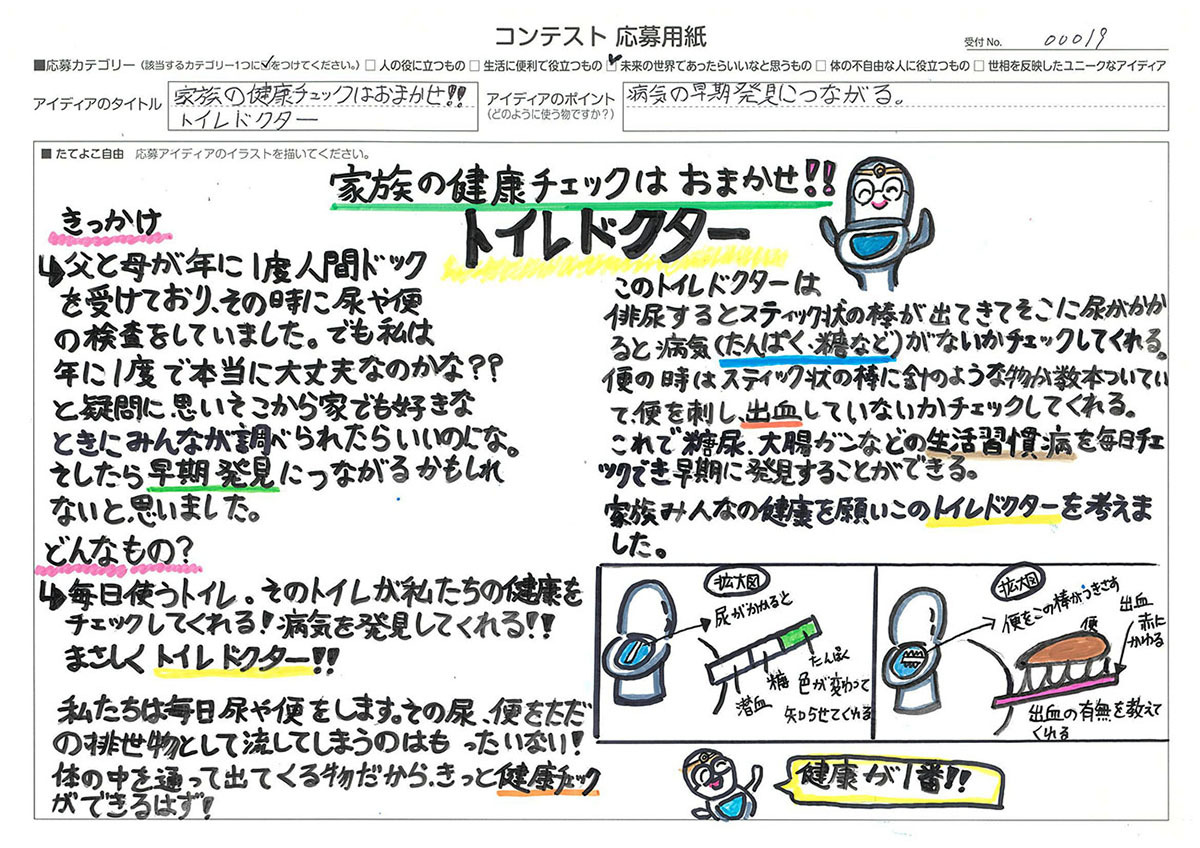 コンテスト 応募用紙
受付 No. 00019
■応募カテゴリー（該当するカテゴリー1つに✓をつけてください。） □ 人の役に立つもの □ 生活に便利で役立つもの ☑ 未来の世界であったらいいなと思うもの □ 体の不自由な人に役立つもの □ 世相を反映したユニークなアイディア
アイディアのタイトル
家族の健康チェックはおまかせ!!
トイレドクター
アイディアのポイント
（どのように使う物ですか？）
病気の早期発見につながる。
■ たてよこ自由 応募アイディアのイラストを描いてください。
家族の健康チェックは おまかせ!!
トイレドクター
きっかけ
↳父と母が年に1度人間ドック
を受けており、その時に尿や便
の検査をしていました。でも私は
年に1度で本当に大丈夫なのかな??
と疑問に思いそこから家でも好きな
ときにみんなが調べられたらいいのにな。
そしたら早期発見につながるかもしれ
ないと、思いました。
どんなもの?
↳毎日使うトイレ。そのトイレが私たちの健康を
チェックしてくれる!病気を発見してくれる!!
まさしくトイレドクター!!
私たちは毎日尿や便をします。その尿、便をただ
の排世物として流してしまうのはもったいない!
体の中を通って出てくる物だから、きっと健康チェック
ができるはず!
このトイレドクターは
排尿するとスティック状の棒が出てきてそこに尿がかか
ると病気(たんぱく・糖など)がないかチェックしてくれる。
便の時はスティック状の棒に針のような物が数本ついてい
て、便を刺し、出血していないかチェックしてくれる。
これで糖尿、大腸ガンなどの生活習慣病を毎日チェ
ックでき早期に発見することができる。
家族みんなの健康を願いこのトイレドクターを考えま
した。
拡大図
尿がかかると
たんぱく
糖
潜血
色が変わって
知らせてくれる
拡大図
便をこの棒がつきさす
便
出血
赤に
かわる
出血の有無を教えて
くれる
健康が1番!!